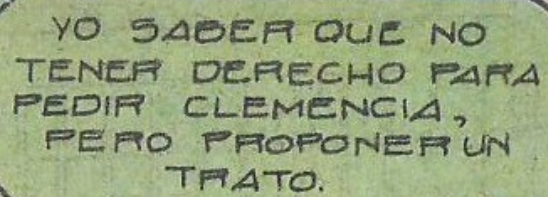 YO SABER QUE NO
TENER DERECHO PARA
PEDIR CLEMENCIA,
PERO PROPONER UN
TRATO.